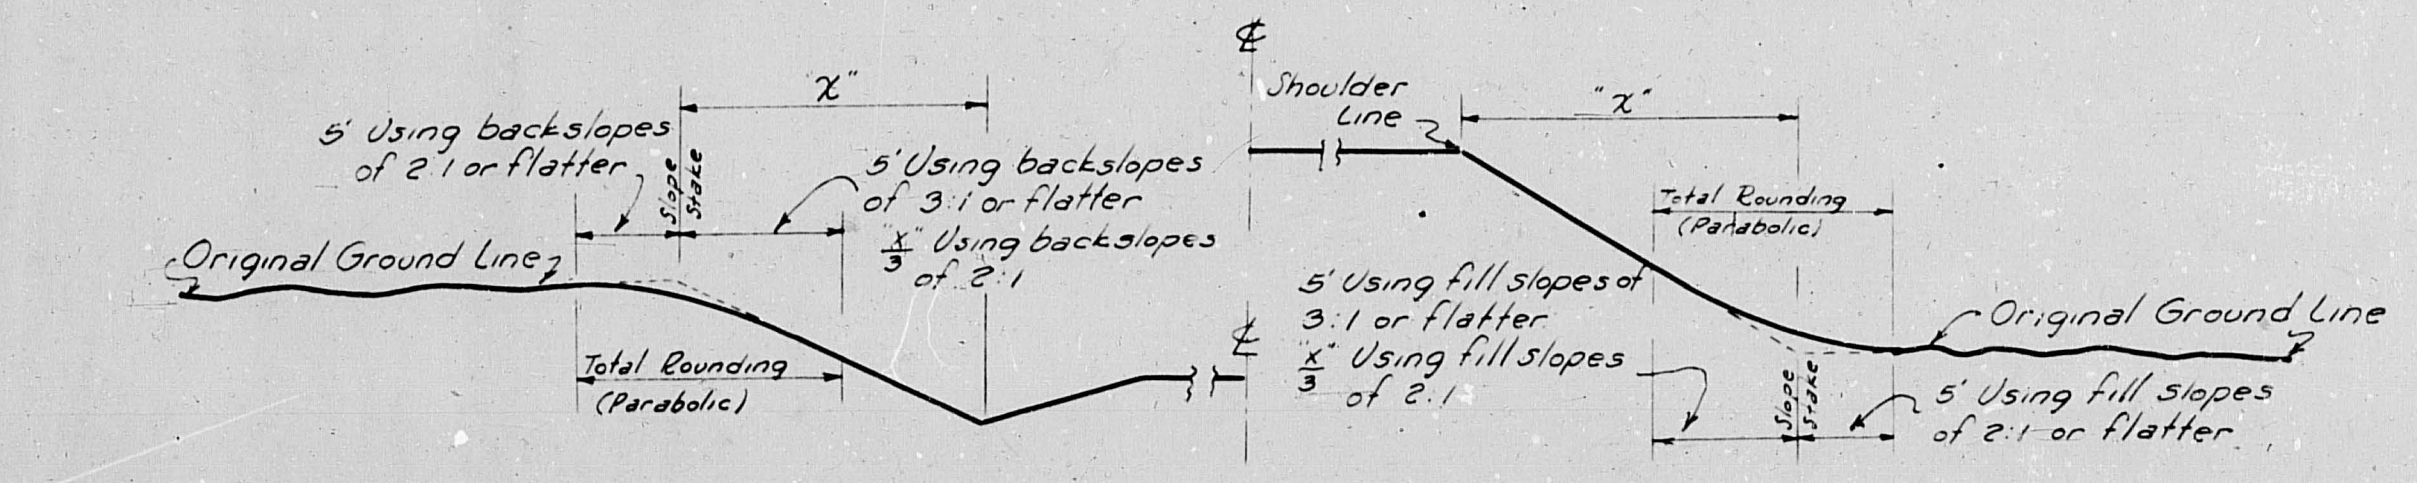 "X"
5' Using backslopes
of 2:1 or flatter
Slope
Stake
5' Using backslopes
of 3:1 or flatter
"X/3" Using backslopes
of 2:1
Original Ground Line
Total Rounding
(Parabolic)
℄
℄
Shoulder
Line
"X"
Total Rounding
(Parabolic)
5' Using fill slopes of
3:1 or flatter
"X/3" Using fill slopes
of 2:1
Original Ground Line
Slope
Stake
5' Using fill slopes
of 2:1 or flatter